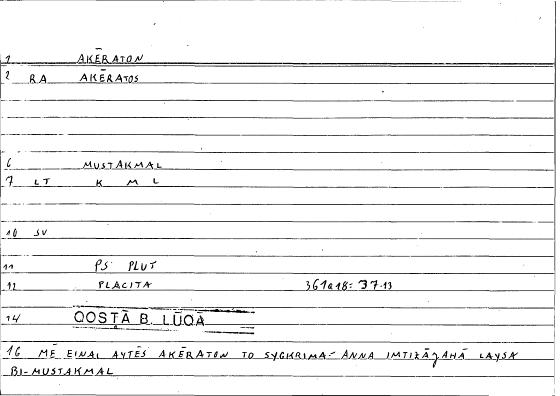 1 AKĒRATON
2 RA AKĒRATOS
6 MUSTAKMAL
7 LT K M L
10 SV
11 PS PLUT
12 PLACITA 361a18= 37.13
14 QOSṬĀ B. LŪQA
16 MĒ EINAI AYTĒS AKĒRATON TO SYGKRIMA = ANNA LAYSA
BI-MUSTAKMAL